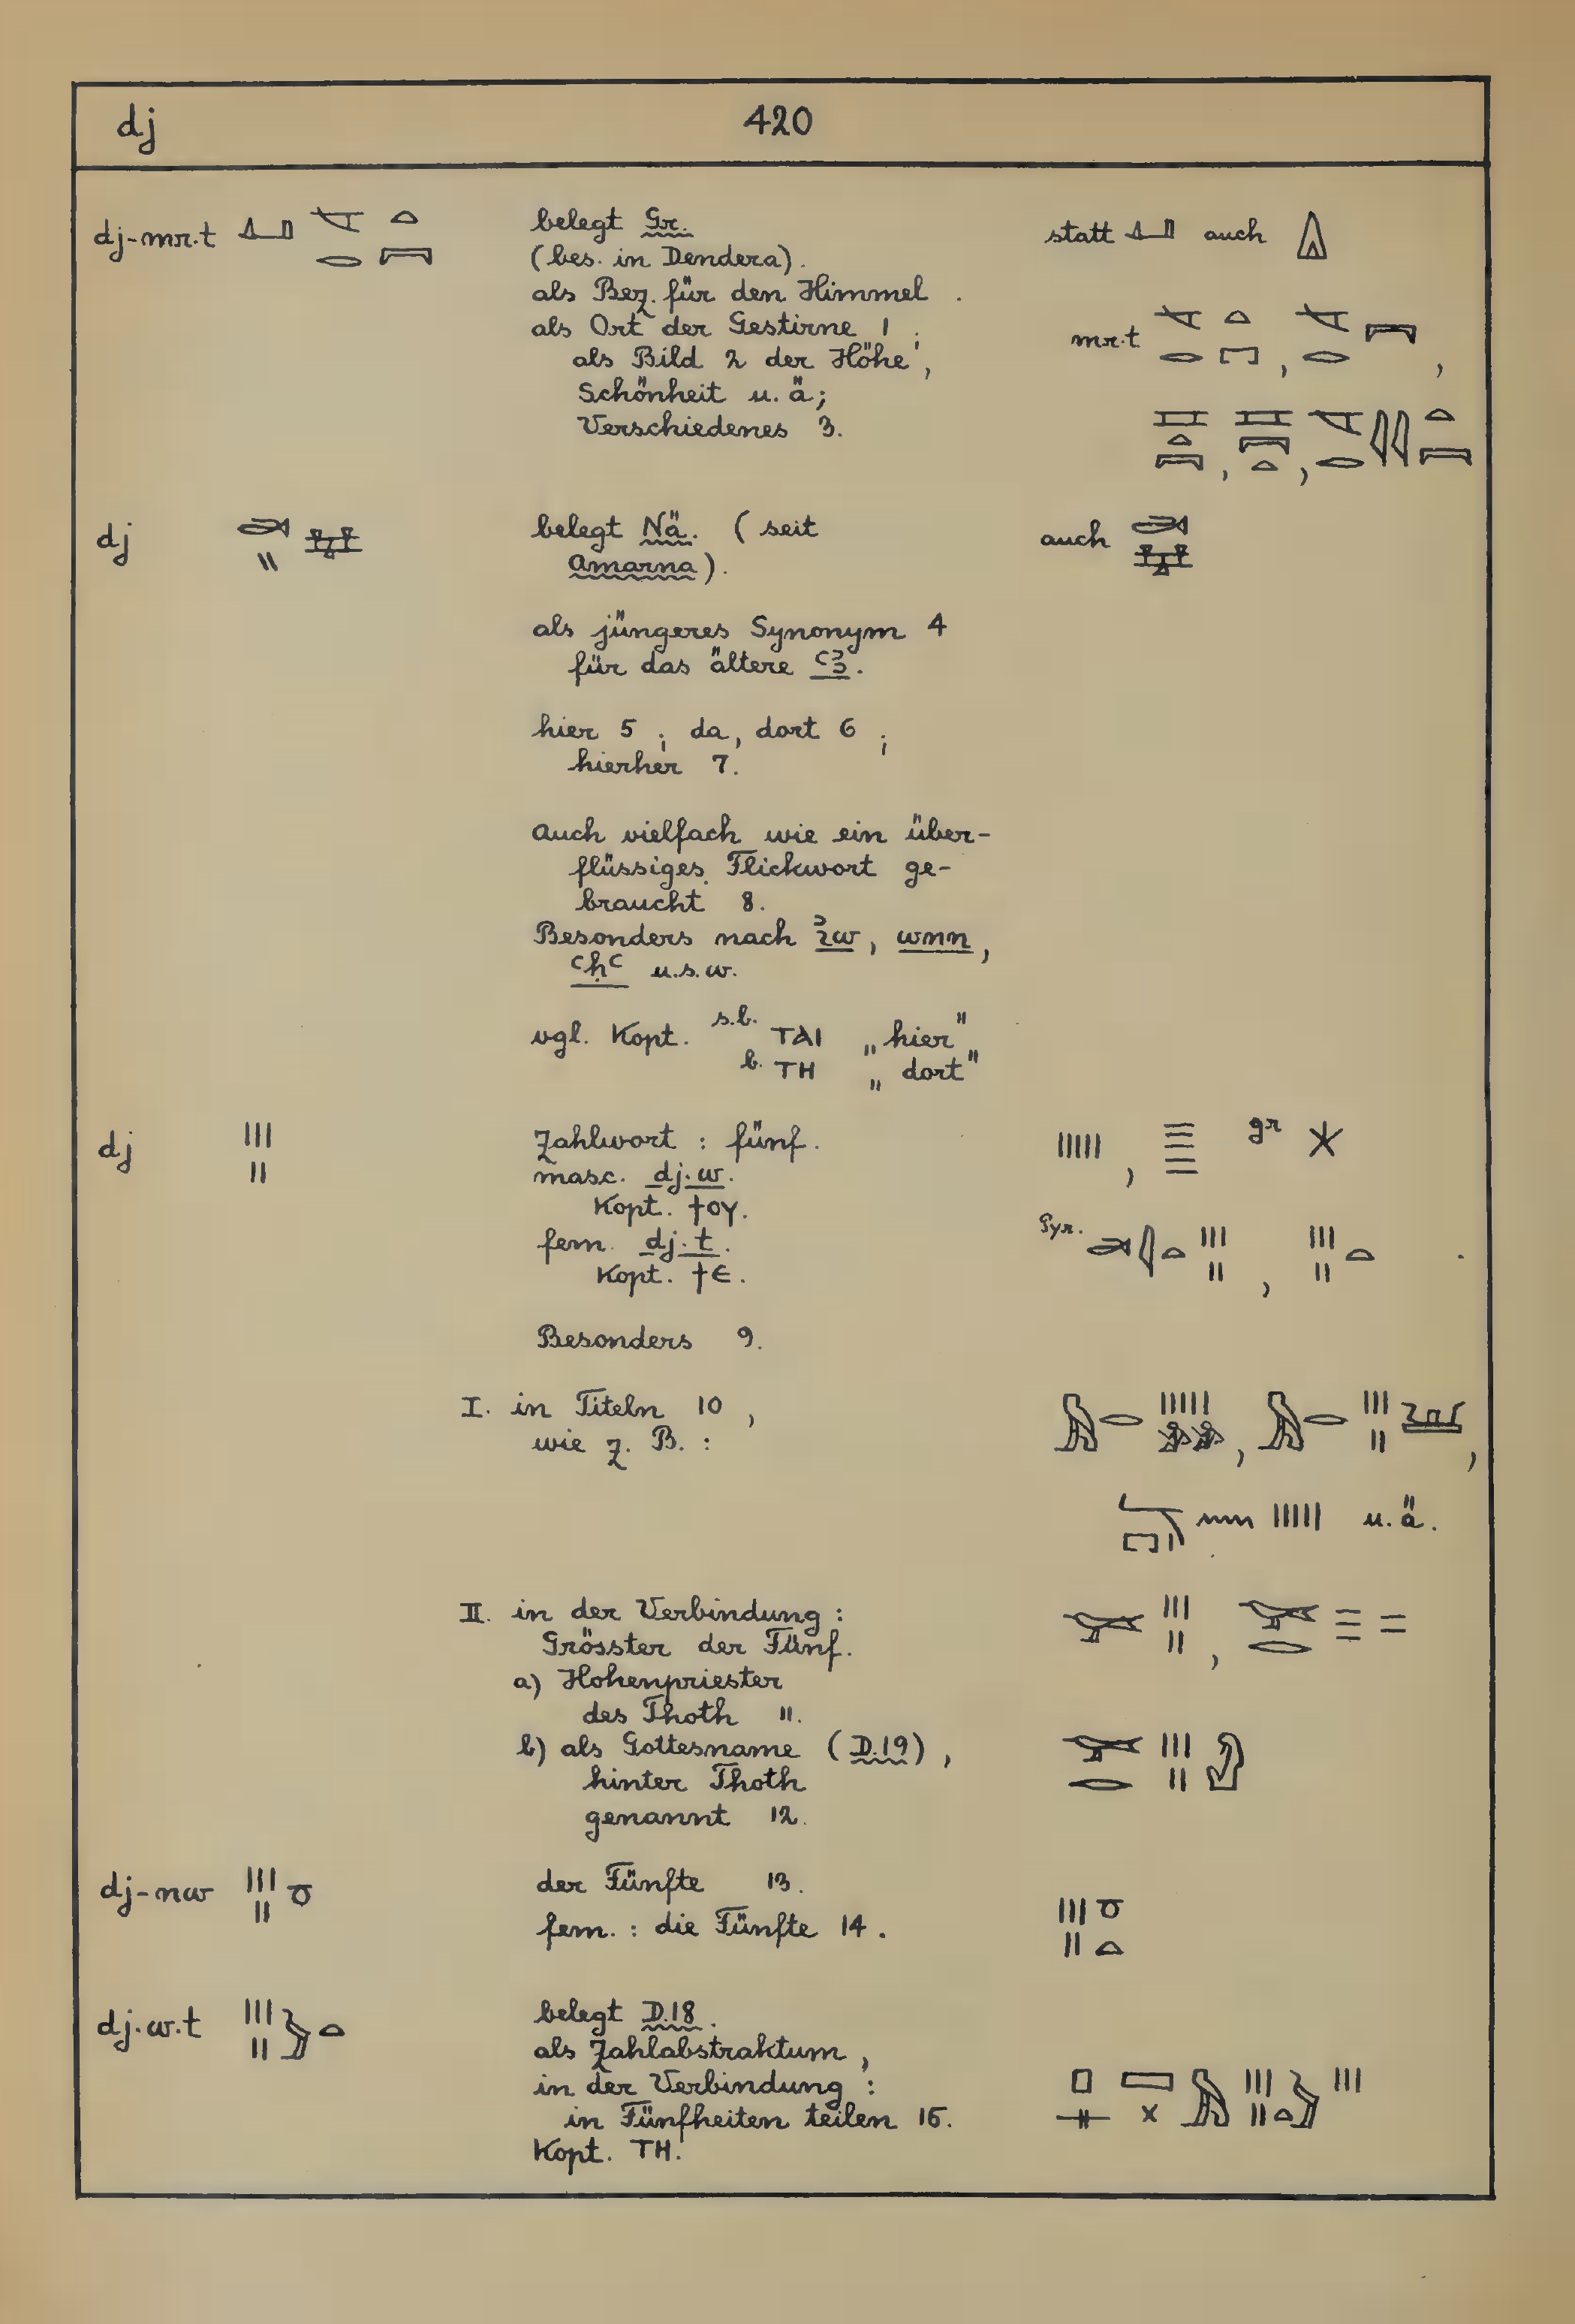 dj 420
dj-mr.t belegt Gr. statt auch
(bes. in Dendera).
als Bez. für den Himmel.
als Ort der Gestirne 1;
als Bild 2 der Höhe, mr.t
Schönheit u. ä;
Verschiedenes 3.
dj belegt Nä. (seit auch
Amarna).
als jüngeres Synonym 4
für das ältere ꜥꜣ.
hier 5; da, dort 6;
hierher 7.
Auch vielfach wie ein über-
flüssiges Flickwort ge-
braucht 8.
Besonders nach ꞽw, wnn,
ꜥḥꜥ u.s.w.
vgl. Kopt. s.b. ⲦⲀⲒ „hier"
b. ⲦⲎ „dort"
dj Zahlwort: fünf. gr
masc. dj.w.
Kopt. ϯⲟⲩ.
fem. dj.t. Pyr.
Kopt. ϯⲉ.
Besonders 9.
I. in Titeln 10,
wie z. B.:
u. ä.
II. in der Verbindung:
Grösster der Fünf.
a) Hohenpriester
des Thoth 11.
b) als Gottesname (D.19),
hinter Thoth
genannt 12.
dj-nw der Fünfte 13.
fem.: die Fünfte 14.
dj.w.t belegt D.18.
als Zahlabstraktum,
in der Verbindung:
in Fünfheiten teilen 15.
Kopt. ⲦⲎ.